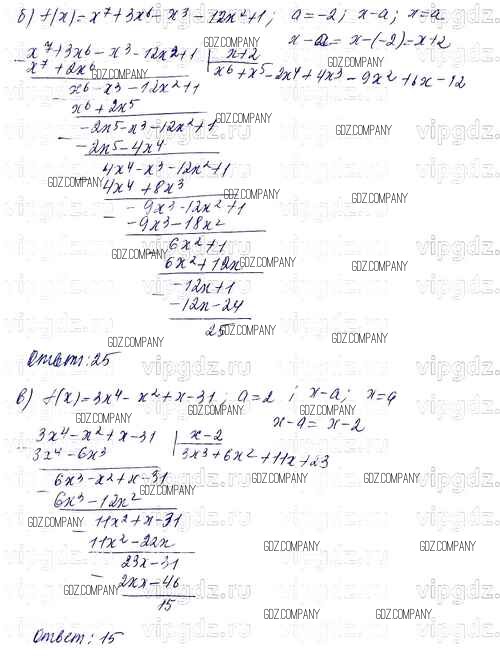 б) f(x) = x⁷ + 3x⁶ - x³ - 12x² + 1; a = -2; x-a; x=a
x-a = x-(-2) = x+2
x⁷ + 3x⁶ - x³ - 12x² + 1 | x+2
x⁷ + 2x⁶ x⁶ + x⁵ - 2x⁴ + 4x³ - 9x² + 6x - 12
x⁶ - x³ - 12x² + 1
x⁶ + 2x⁵
-2x⁵ - x³ - 12x² + 1
-2x⁵ - 4x⁴
4x⁴ - x³ - 12x² + 1
4x⁴ + 8x³
-9x³ - 12x² + 1
-9x³ - 18x²
6x² + 1
6x² + 12x
-12x + 1
-12x - 24
25
Ответ: 25
в) f(x) = 3x⁴ - x² + x - 31; a = 2; x-a; x=a
x-a = x-2
3x⁴ - x² + x - 31 | x-2
3x⁴ - 6x³ 3x³ + 6x² + 11x + 23
6x³ - x² + x - 31
6x³ - 12x²
11x² + x - 31
11x² - 22x
23x - 31
- 46
15
Ответ: 15
GDZ.COMPANY
vipgdz.ru